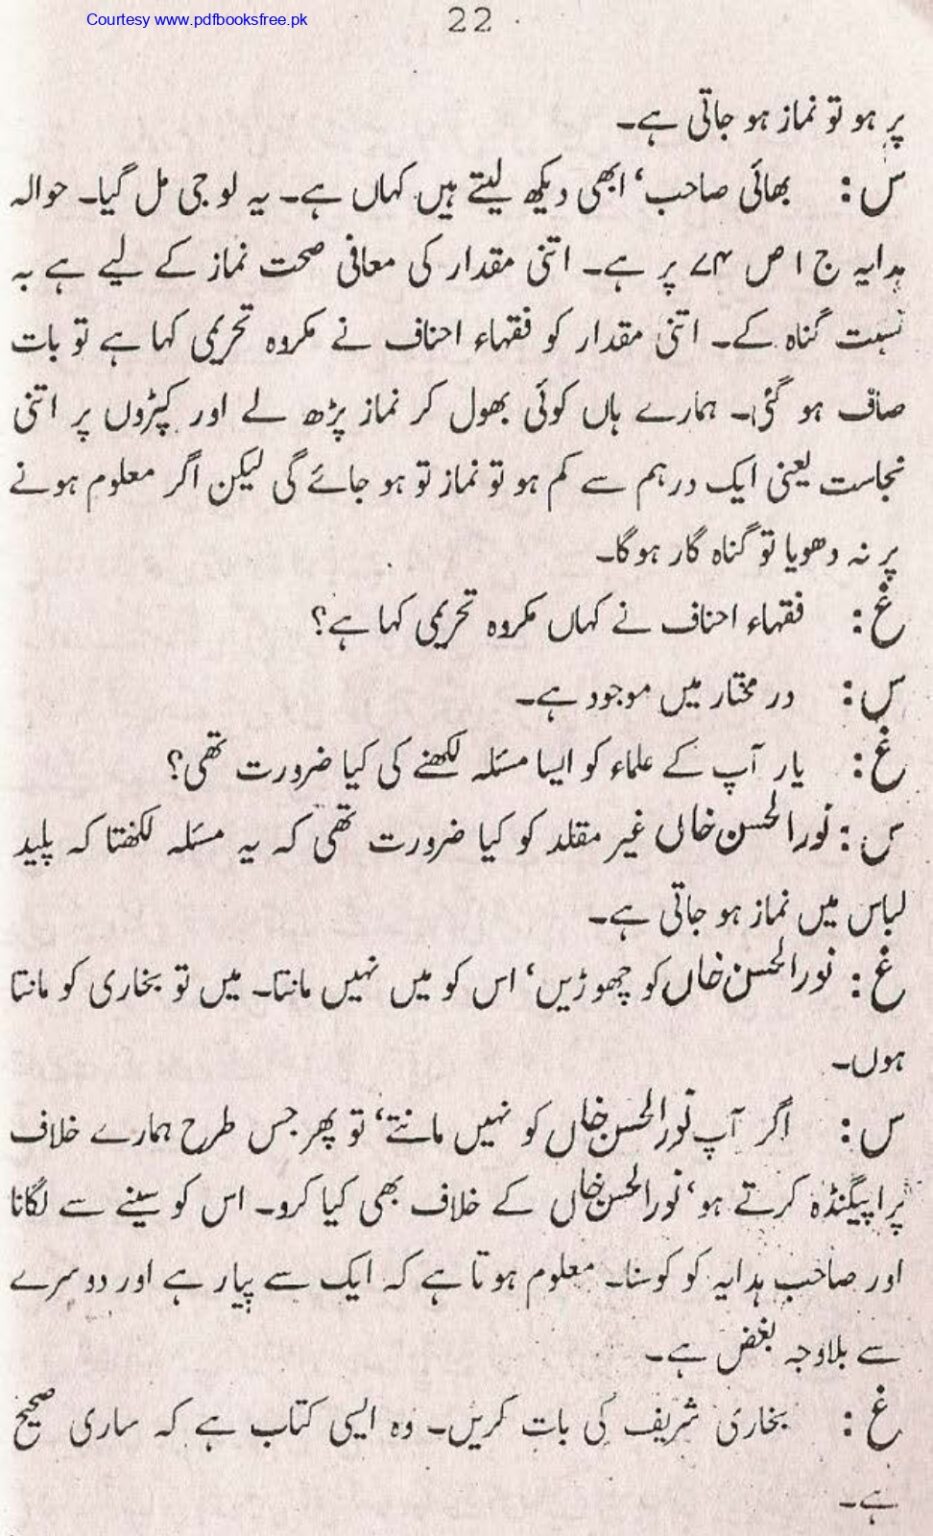 Courtesy www.pdfbooksfree.pk
22
پر ہو تو نماز ہو جاتی ہے۔
س: بھائی صاحب‘ ابھی دیکھ لیتے ہیں کہاں ہے۔ یہ لو جی مل گیا۔ حوالہ
ہدایہ ج ۱ ص ۷۴ پر ہے۔ اتنی مقدار کی معافی صحت نماز کے لیے ہے بہ
نسبت گناہ کے۔ اتنی مقدار کو فقہاء احناف نے مکروہ تحریمی کہا ہے تو بات
صاف ہو گئی۔ ہمارے ہاں کوئی بھول کر نماز پڑھ لے اور کپڑوں پر اتنی
نجاست یعنی ایک درہم سے کم ہو تو نماز تو ہو جائے گی لیکن اگر معلوم ہونے
پر نہ دھویا تو گناہ گار ہوگا۔
غ: فقہاء احناف نے کہاں مکروہ تحریمی کہا ہے؟
س: در مختار میں موجود ہے۔
غ: یار آپ کے علماء کو ایسا مسئلہ لکھنے کی کیا ضرورت تھی؟
س: نور الحسن خاں غیر مقلد کو کیا ضرورت تھی کہ یہ مسئلہ لکھتا کہ پلید
لباس میں نماز ہو جاتی ہے۔
غ: نور الحسن خاں کو چھوڑیں‘ اس کو میں نہیں مانتا۔ میں تو بخاری کو مانتا
ہوں۔
س: اگر آپ نور الحسن خاں کو نہیں مانتے‘ تو پھر جس طرح ہمارے خلاف
پراپیگنڈہ کرتے ہو‘ نور الحسن خاں کے خلاف بھی کیا کرو۔ اس کو سینے سے لگانا
اور صاحب ہدایہ کو کوسنا۔ معلوم ہوتا ہے کہ ایک سے پیار ہے اور دوسرے
سے بلاوجہ بغض ہے۔
غ: بخاری شریف کی بات کریں۔ وہ ایسی کتاب ہے کہ ساری صحیح
ہے۔